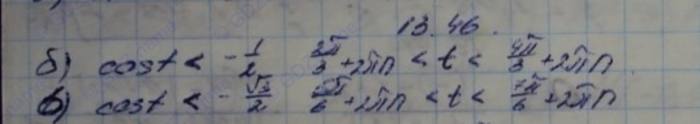 13.46.
б) cost < -1/2 2π/3 + 2πn < t < 4π/3 + 2πn
в) cost < -√3/2 5π/6 + 2πn < t < 7π/6 + 2πn